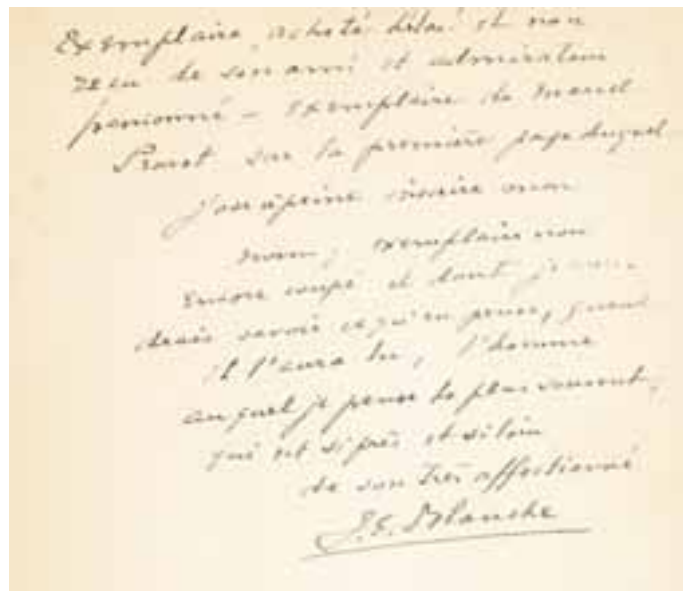 Exemplaire, acheté hélas! et non
reçu de son ami et admirateur
passionné - Exemplaire de Marcel
Proust sur la première page duquel
j'ose à peine inscrire mon
nom, exemplaire non
encore coupé et dont je vou-
drais savoir ce qu'en pense, quand
il l'aura lu, l'homme
auquel je pense le plus souvent,
qui est si près et si loin
de son très affectionné
J. E. Blanche